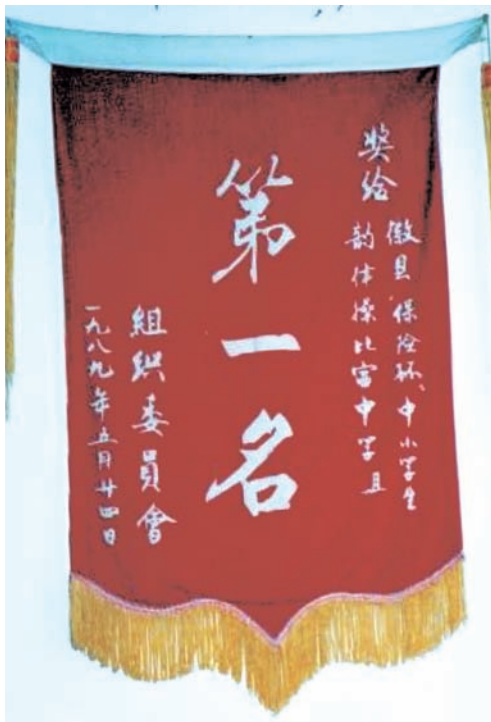 奖给
徽县“保险杯”中小学生
韵体操比赛中学
第一名
組织委員會
一九八九年五月廿四日